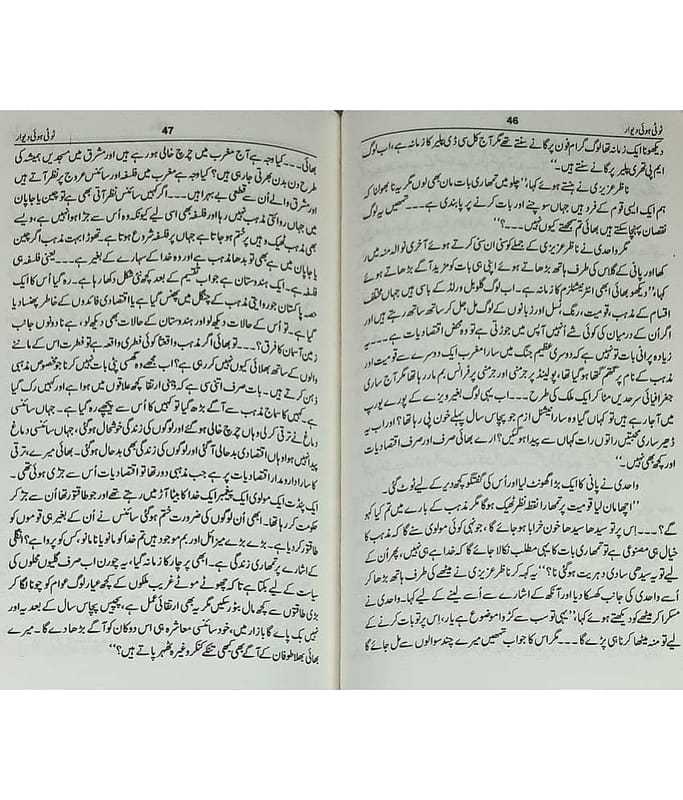 46
ٹوٹی ہوئی دیوار
دیکھو نا ایک زمانہ تھا لوگ گرام فون پر گانے سنتے تھے مگر آج کل سی ڈی پلیئر کا زمانہ ہے، اب لوگ
ایم پی تھری پلیئر پر گانے سنتے ہیں۔‘‘
ناظر عزیزی نے ہنستے ہوئے کہا،’’چلو میں تمھاری بات مان بھی لوں مگر یہ نا بھولنا کہ
ہم ایک ایسی قوم کے فرد ہیں جہاں سوچنے اور بات کرنے پر پابندی ہے۔۔۔تمھیں یہ لوگ
نقصان پہنچا سکتے ہیں بھائی تم سمجھتے کیوں نہیں۔۔۔؟‘‘
مگر واحدی نے ناظر عزیزی کے جملے کو سنی ان سنی کرتے ہوئے آخری نوالہ منہ میں رکھا
اور پانی کے گلاس کی طرف ہاتھ بڑھاتے ہوئے اپنی ہی بات کو مزید آگے بڑھاتے ہوئے
کہا،’’دیکھو بھائی اب انٹرنیشنلزم کا زمانہ ہے۔ اب لوگ گلوبل ورلڈ کے باسی ہیں جہاں مختلف
اقسام کے مذہب، قومیت، رنگ، نسل اور زبانوں کے لوگ مل جل کر ساتھ ساتھ رہتے ہیں اور
اگر ان کے درمیان کی کوئی شے انہیں آپس میں جوڑتی ہے تو وہ محض اقتصادیات ہے۔۔۔۔یہ
زیادہ پرانی بات نہیں ہے کہ دوسری عظیم جنگ میں سارا مغرب ایک دوسرے سے قومیت اور
مذہب کے نام پر گتھم گتھا ہو گیا تھا، پولینڈ پر جرمنی اور جرمنی پر فرانس بم مار رہا تھا مگر آج ساری
جغرافیائی سرحدیں مٹا کر ایک ملک کی طرح۔۔۔اب یہی لوگ بغیر ویزے کے پورے یورپ
میں آ جا رہے ہیں تو کہاں گیا وہ سارا نیشنل ازم جو پچاس سال پہلے خون پی رہا تھا؟ اور اب یہ
ڈھیر ساری محبتیں راتوں رات کہاں سے پیدا ہو گئیں؟ ارے بھائی صرف اور صرف اقتصادیات
اور کچھ بھی نہیں۔‘‘
واحدی نے پانی کا ایک بڑا گھونٹ لیا اور اُس کی گفتگو کچھ دیر کے لیے ٹوٹ گئی۔
’’اچھا مان لیا قومیت پر تمھارا نقطہ نظر ٹھیک ہوگا مگر مذہب کے بارے میں تم کیا کہو
گے؟۔۔۔اِس پر تو سیدھا سیدھا خون خرابا ہو جائے گا، جونہی کوئی مولوی سنے گا کہ مذہب کا
خیال ہی مصنوعی ہے تو تمھاری بات کا یہی مطلب نکالا جائے گا کہ خدا ہے ہی نہیں، پھر اُن کے
لیے تو یہ سیدھی سادی دہریت ہو گئی نا؟‘‘ یہ کہہ کر ناظر عزیزی نے میٹھے کی طرف ہاتھ بڑھا کر
اُسے واحدی کی جانب کھسکا دیا اور آنکھ کے اشارے سے اُسے لینے کے لیے کہا۔ واحدی نے
مسکرا کر میٹھے کو دیکھتے ہوئے کہا،’’یہی تو سب سے کڑوا موضوع ہے یار، اِس پر تو بات کرنے کے
لیے تو منہ میٹھا کرنا ہی پڑے گا۔۔۔مگر اس کا جواب تمھیں میرے چند سوالوں سے مل جائے گا
47
ٹوٹی ہوئی دیوار
بھائی۔۔۔کیا وجہ ہے آج مغرب میں چرچ خالی ہو رہے ہیں اور مشرق میں مسجدیں ہمیشہ کی
طرح دن بدن بھرتی جا رہی ہیں؟ کیا وجہ ہے مغرب میں فلسفہ اور سائنس عروج پر نظر آتے ہیں
اور مشرق والے اُن سے قطعی بے بہرا ہیں۔۔۔اگر کہیں سائنس نظر آتی بھی ہے تو چین یا جاپان
میں جہاں روائتی مذہب نہیں رہا اور فلسفہ بھی اسی لیے کیونکہ وہ اُس سے جڑا ہوا نہیں ہے، ویسے
بھی مذہب ٹھیک وہیں پر ختم ہو جاتا ہے جہاں پر فلسفہ شروع ہوتا ہے۔تھوڑا بہت مذہب اگر چین
یا جاپان میں ہے بھی تو بدھا مذہب ہے اور وہ خدا کے سہارے کے بغیر ہے۔۔۔یعنی فلسفہ ہی
فلسفہ ہے۔ ایک ہندوستان ہے جو اب تقسیم کے بعد کچھ نئی شکل دکھا رہا ہے۔ رہ گیا اُس کا ایک
حصہ پاکستان جو روایتی مذہب کے چنگل میں پھنس گیا ہے یا اقتصادی فائدوں کے خاطر پھنسا دیا
گیا ہے۔ تو اُس کے حالات دیکھ لو اور ہندوستان کے حالات بھی دیکھ لو، ہے نا دونوں جانب
زمین آسمان کا فرق؟۔۔۔تو بھائی اگر مذہب واقعتاً کوئی فطری واقعہ ہی ہے تو فطرت اس کے ماننے
والوں کے ساتھ بھلائی کیوں نہیں کر رہی ہے؟ اب مجھے وہ گھسی پٹی بات نہیں کرنا جو مخصوص مذہبی
ذہن کرتے ہیں۔ بات صرف اتنی سی ہے کہ ذہنی ارتقا کچھ علاقوں میں ہوا ہے اور کہیں رک گیا
ہے۔ کہیں کا سماج مذہب سے آگے بڑھ گیا تو کہیں کا اُس سے پیچھے رہ گیا ہے۔ جہاں سائنسی
دماغ نے ترقی کر لی وہاں چرچ خالی ہو گئے اور لوگوں کی زندگی خوشحال ہو گئی، جہاں سائنسی دماغ
پیدا نہیں ہوا وہاں اقتصادی بدحالی آ گئی اور لوگوں کی زندگی بھی بدحال ہو گئی۔ بھائی میرے، ترقی
کا سارا دار و مدار اقتصادیات پر ہے جب مذہبی دور تھا تو اقتصادیات اُس سے جڑی ہوئی تھی۔
ایک پنڈت ایک مولوی ایک پیغمبر ایک خدا کا بیٹا آڑ میں رہتے تھے اور جو طاقتور تھا اُن سے جڑ کر
حکومت کر رہا تھا۔ ابھی اُن لوگوں کی ضرورت ختم ہو گئی سائنس نے اُن کے بغیر ہی قوموں کو
طاقتور کر دیا ہے۔ بڑے بڑے میزائل اور بم موجود ہیں تم خدا کو مانو یا نا مانو، کس کو پروا ہے؟ انگلی
کے اشارے پر تمھاری زندگی ہے۔ ابھی پرچار کا زمانہ گیا، یہ چورن اب صرف گلیوں محلوں کی
سیاست کے لیے بکتا ہے تاکہ چھوٹے موٹے غریب ملکوں کے کچھ عیار لوگ عوام کو چونا لگا کر
بڑی طاقتوں سے کچھ مال بٹور سکیں مگر یہ بھی ارتقائی عمل ہے، پچیس پچاس سال کے بعد یہ اور
نہیں بک پائے گا بازار میں، خود سائنسی معاشرہ ہی اس دوکان کو آگے بڑھا دے گا۔ میرے
بھائی بھلا طوفان کے آگے بھی کبھی تنکے کنکر وغیرہ ٹھہر پاتے ہیں؟‘‘